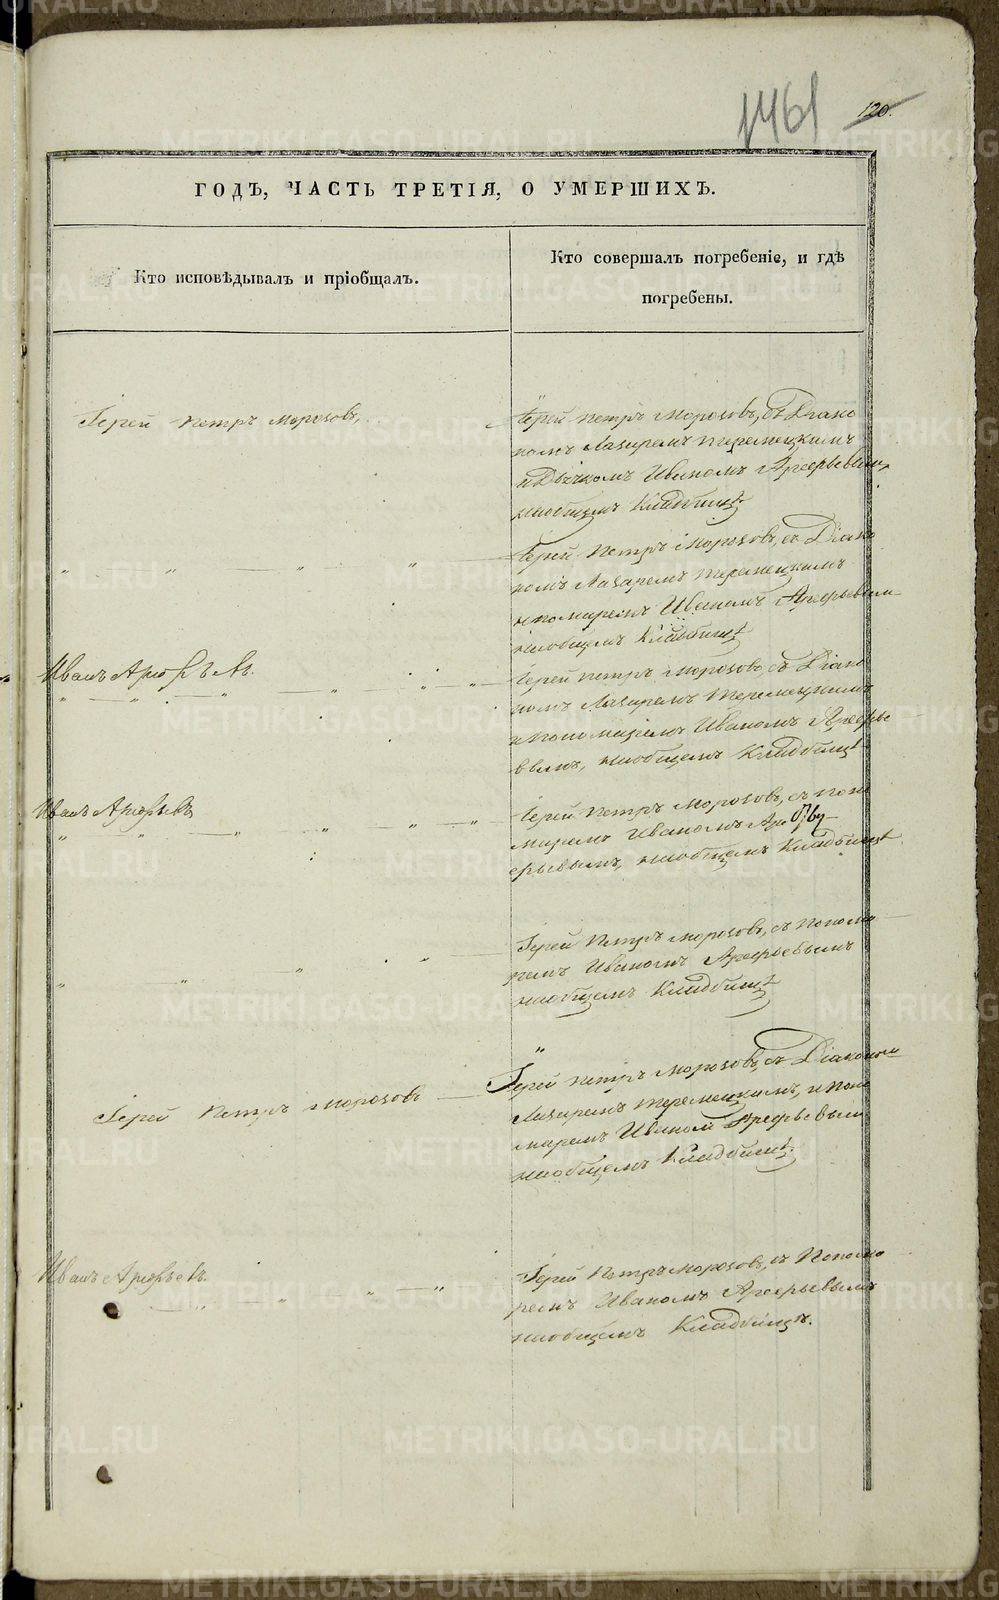 1461 120.
ГОДЪ, ЧАСТЬ ТРЕТІЯ, О УМЕРШИХЪ.
Кто исповѣдывалъ и пріобщалъ.
Кто совершалъ погребеніе, и гдѣ
погребены.
Іерей Петръ Морозовъ,
Іерей Петръ Морозовъ, съ Діако
номъ Лазаремъ
и Дьячкомъ Иваномъ Арефьевым,
на общемъ Кладбищѣ
Іерей Петръ Морозовъ, съ Діако
номъ Лазаремъ
и пономаремъ Иваномъ Арефьевым
на общемъ Кладбищѣ
Иванъ Арефьевъ.
Іерей Петръ Морозовъ, съ Діако
номъ Лазаремъ
и Пономаремъ Иваномъ Арефье
вымъ, на общемъ Кладбищѣ
Иванъ Арефьевъ
Іерей Петръ Морозовъ, съ Поно
маремъ Иваномъ Аре
фьевымъ, на общемъ Кладбищѣ
Іерей Петръ Морозовъ, съ Понома
ремъ Иваномъ Арефьевымъ
на общемъ Кладбищѣ
Іерей Петръ Морозовъ
Іерей Петръ Морозовъ, съ Діаконом
Лазаремъ и Поно
маремъ Иваном Арефьевым
на общемъ Кладбищѣ.
Иванъ Арефьевъ.
Іерей Петръ Морозовъ, съ Понома
ремъ Иваномъ Арефьевымъ
на общемъ Кладбищѣ.
METRIKI.GASO-URAL.RU